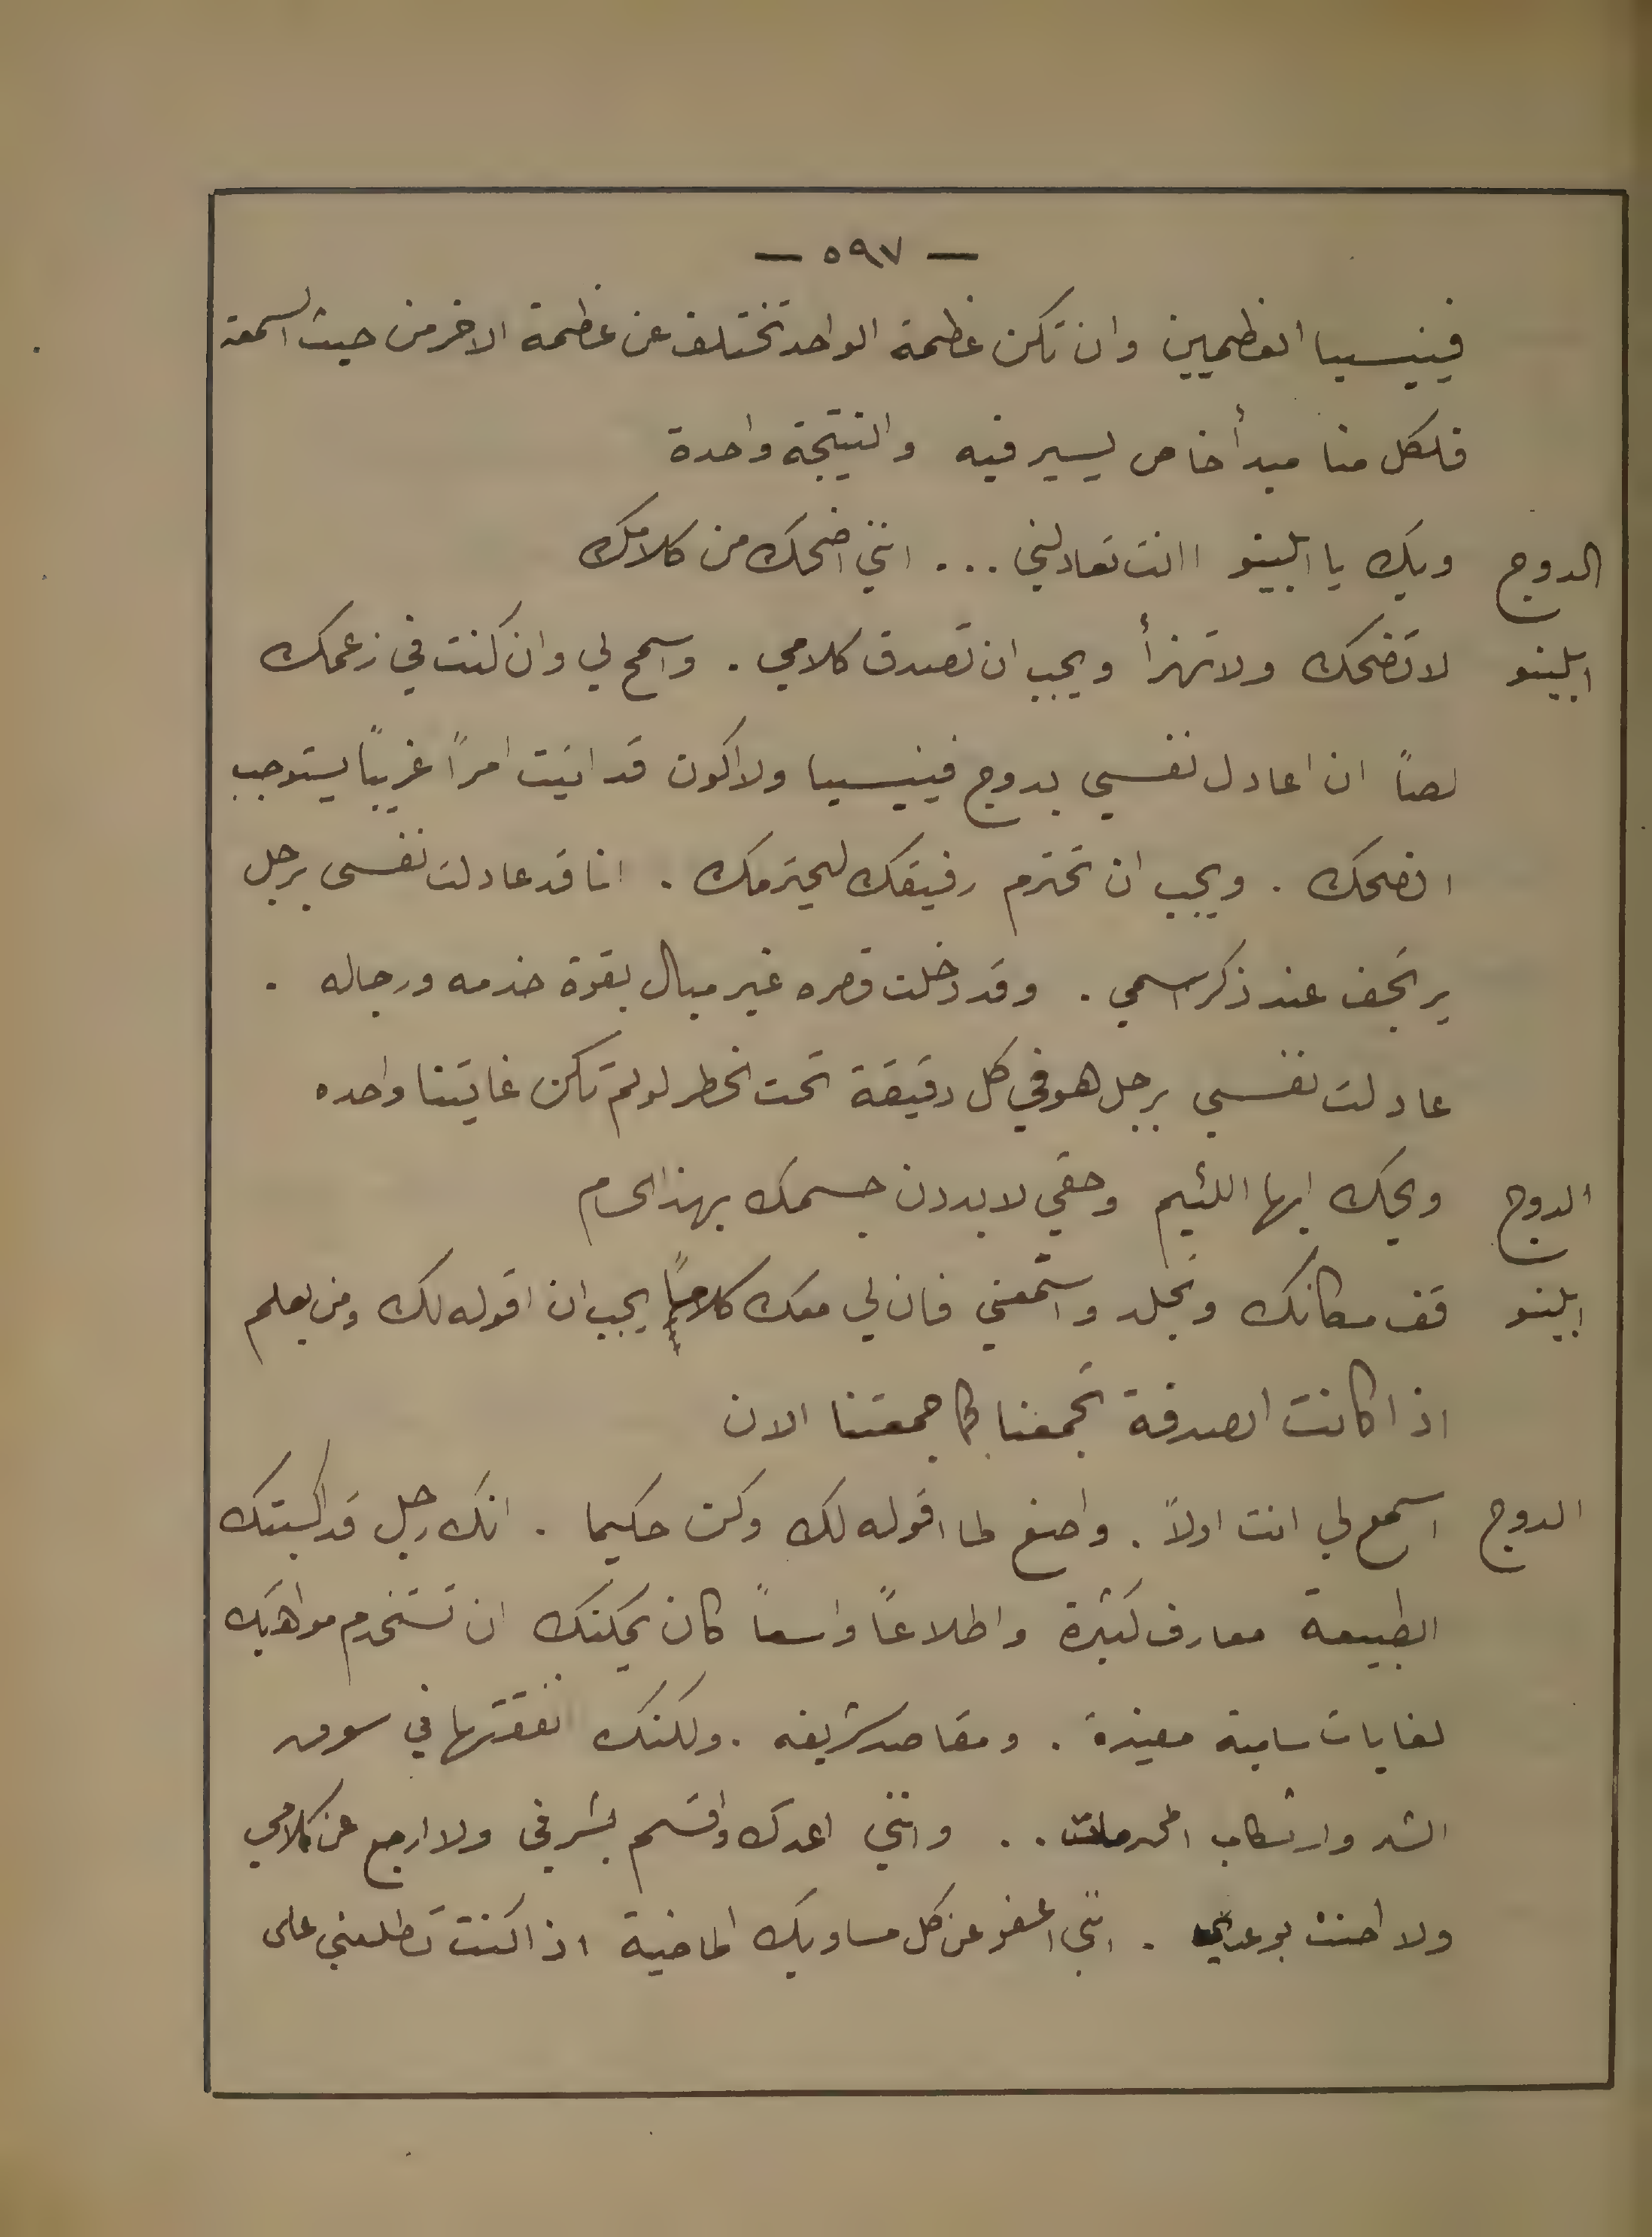 — ٥٩٧ —
فينيسيا العظيمين وان تكن عظمة الواحد تختلف عن عظمة الاخر من حيث السمعة
فلكل منا مبدأ خاص يسير فيه والنتيجة واحدة
الدوج ويك يا ابلينو اانت تعادلني ... انني اضحك من كلامك
ابلينو لا تضحك ولا تهزأ ويجب ان تصدق كلامي . واسمح لي وان كنت في زعمك
لصاً ان اعادل نفسي بدوج فينيسيا ولا اكون قد اتيت امراً غريباً يستوجب
الضحك . ويجب ان تحترم رفيقك ليحترمك . انا قد عادلت نفسى برجل
يرتجف عند ذكر اسمي . وقد دخلت قصره غير مبال بقوة خدمه ورجاله .
عادلت نفسي برجل هو في كل دقيقة تحت الخطر لو لم تكن غايتنا واحده
الدوج ويحك ايها اللئيم وحقي لابددن جسمك بهذا الحسام
ابلينو قف مكانك وتجلد واستمعني فان لي معك كلاماً يجب ان اقوله لك ومن يعلم
اذا كانت الصدفة تجمعنا كما جمعتنا الان
الدوج اسمع لي انت اولاً . واصغ لما اقوله لك وكن حكيما . انك رجل قد اكسبتك
الطبيعة معارف كثيرة واطلاعاً واسعاً كان يمكنك ان تستخدم مواهبك
لغايات سامية مفيدة . ومقاصد شريفه . ولكنك نفقتها في سوق
الشر وارتكاب المحرمات .. وانني اعدك واقسم بشرفي ولا ارجع عن كلامي
ولا احنث بوعدي . انني اعفو عن كل مساويك الماضية اذا كنت تطلعني على